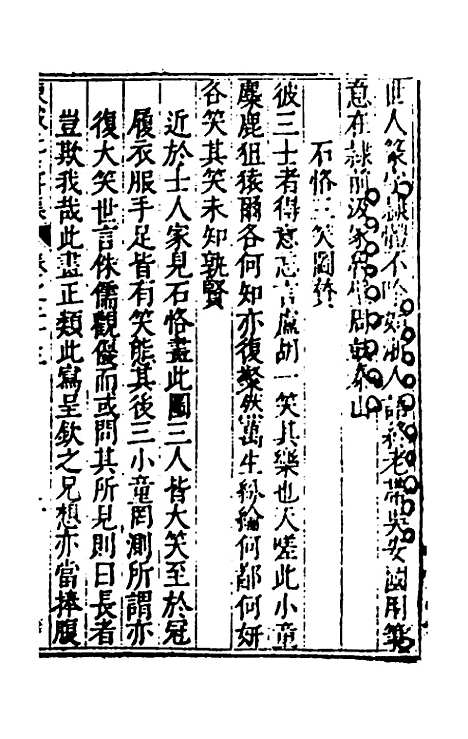 世人篆字隸體不除如浙人語終老帶吳安國用筆
意在隸前汲冢魯壁周鼓泰山
石恪三笑圖贊
彼三士者得意忘言盧胡一笑其樂也天嗟此小童
麋鹿狙猿爾各何知亦復粲然萬生紛綸何鄙何妍
各笑其笑未知孰賢
近於士人家見石恪畫此圖三人皆大笑至於冠
履衣服手足皆有笑態其後三小童罔測所謂亦
復大笑世言侏儒觀優而或問其所見則曰長者
豈欺我哉此畫正類此寫呈欽之兄想亦當捧腹